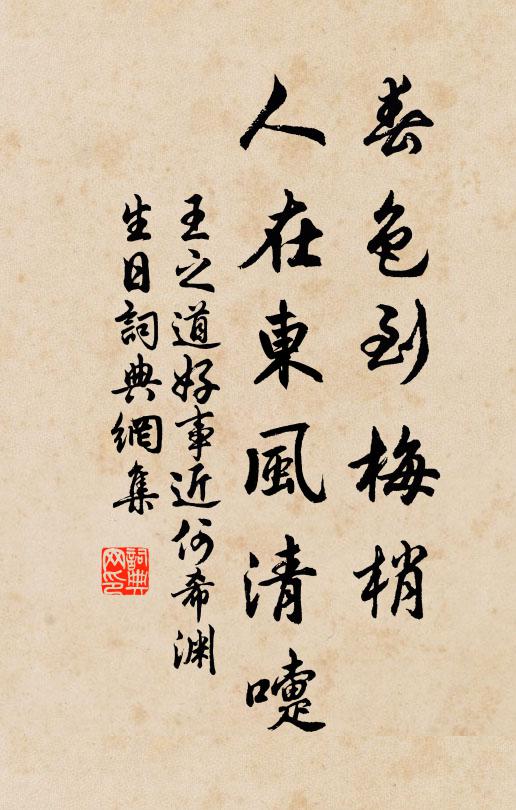 春色到梅梢
人在東風清嚏
王之道好事近何希淵
生日詞典網集
詞典网印